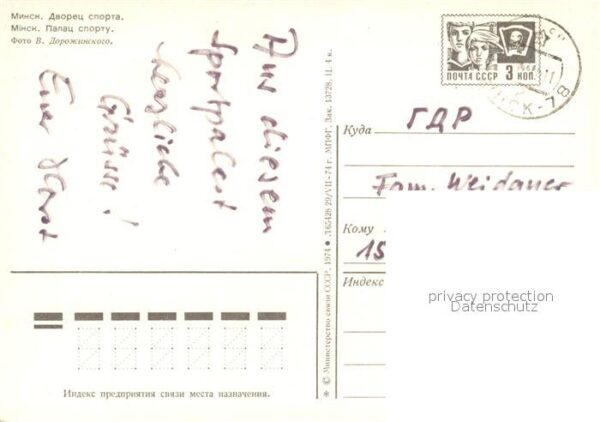 Минск. Дворец спорта.
Мінск. Палац спорту.
Фото В. Дорожинского.
Aus diesem
Sportpalast
herzliche
Grüsse!
Euer Horst
ПОЧТА СССР 3 КОП.
Куда ГДР
Fam. Weidauer
Кому
15
Индекс
privacy protection
Datenschutz
Индекс предприятия связи места назначения.
* © Министерство связи СССР. 1974 • Л65428 29/VII-74 г. МПФГ. Зак. 13728. Ц. 4 к.